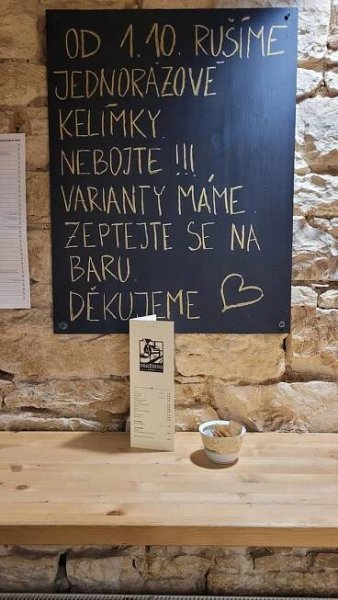 OD 1.10. RUŠÍME
JEDNORÁZOVÉ
KELÍMKY.
NEBOJTE !!!
VARIANTY MÁME.
ZEPTEJTE SE NA
BARU.
DĚKUJEME